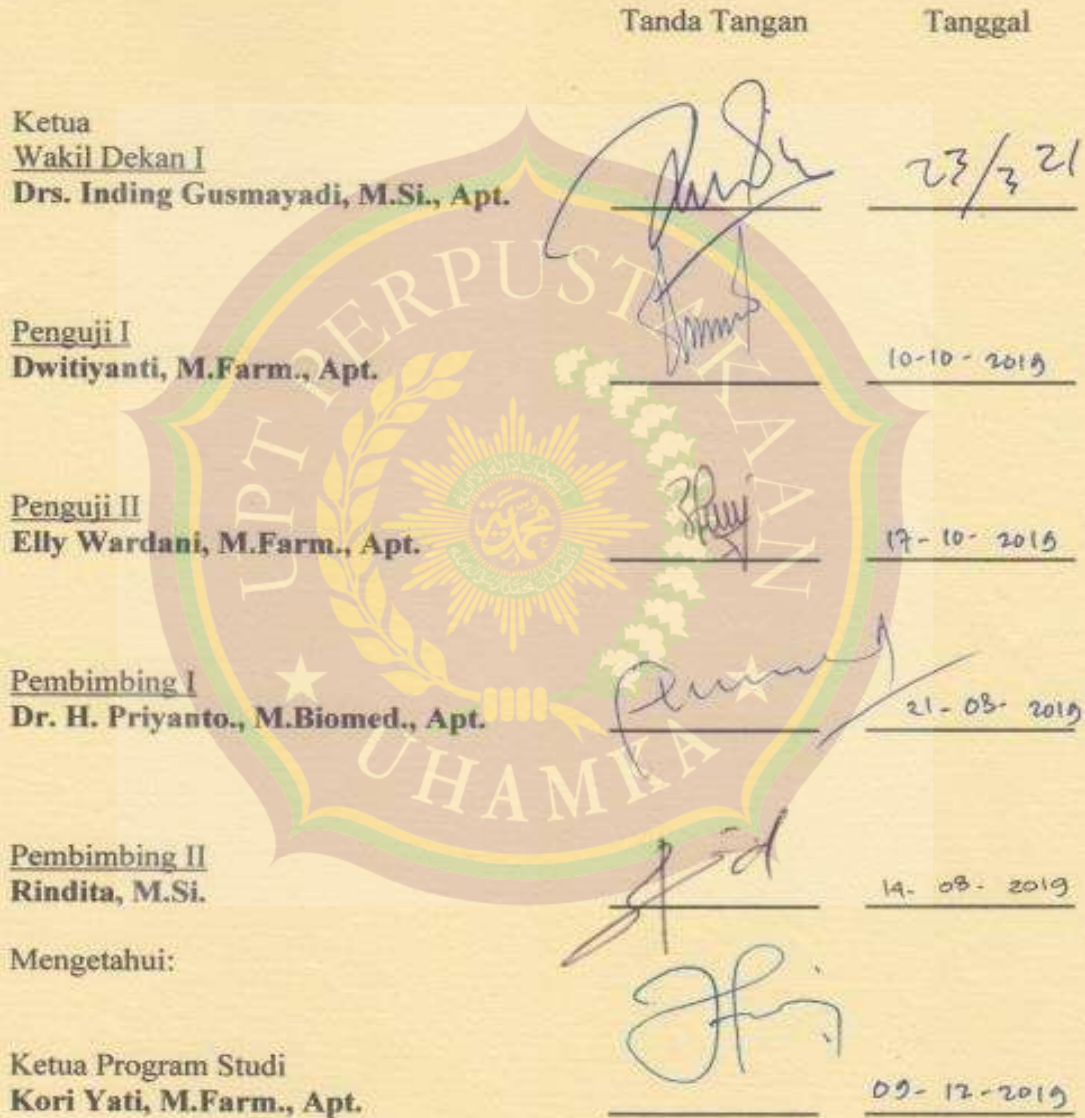 Tanda Tangan Tanggal
Ketua
Wakil Dekan I
Drs. Inding Gusmayadi, M.Si., Apt. 23/3 21
Penguji I
Dwitiyanti, M.Farm., Apt. 10-10-2019
Penguji II
Elly Wardani, M.Farm., Apt. 17-10-2019
Pembimbing I
Dr. H. Priyanto., M.Biomed., Apt. 21-08-2019
Pembimbing II
Rindita, M.Si. 14-08-2019
Mengetahui:
Ketua Program Studi
Kori Yati, M.Farm., Apt. 09-12-2019
UPT PERPUSTAKAAN
UHAMKA
محمد